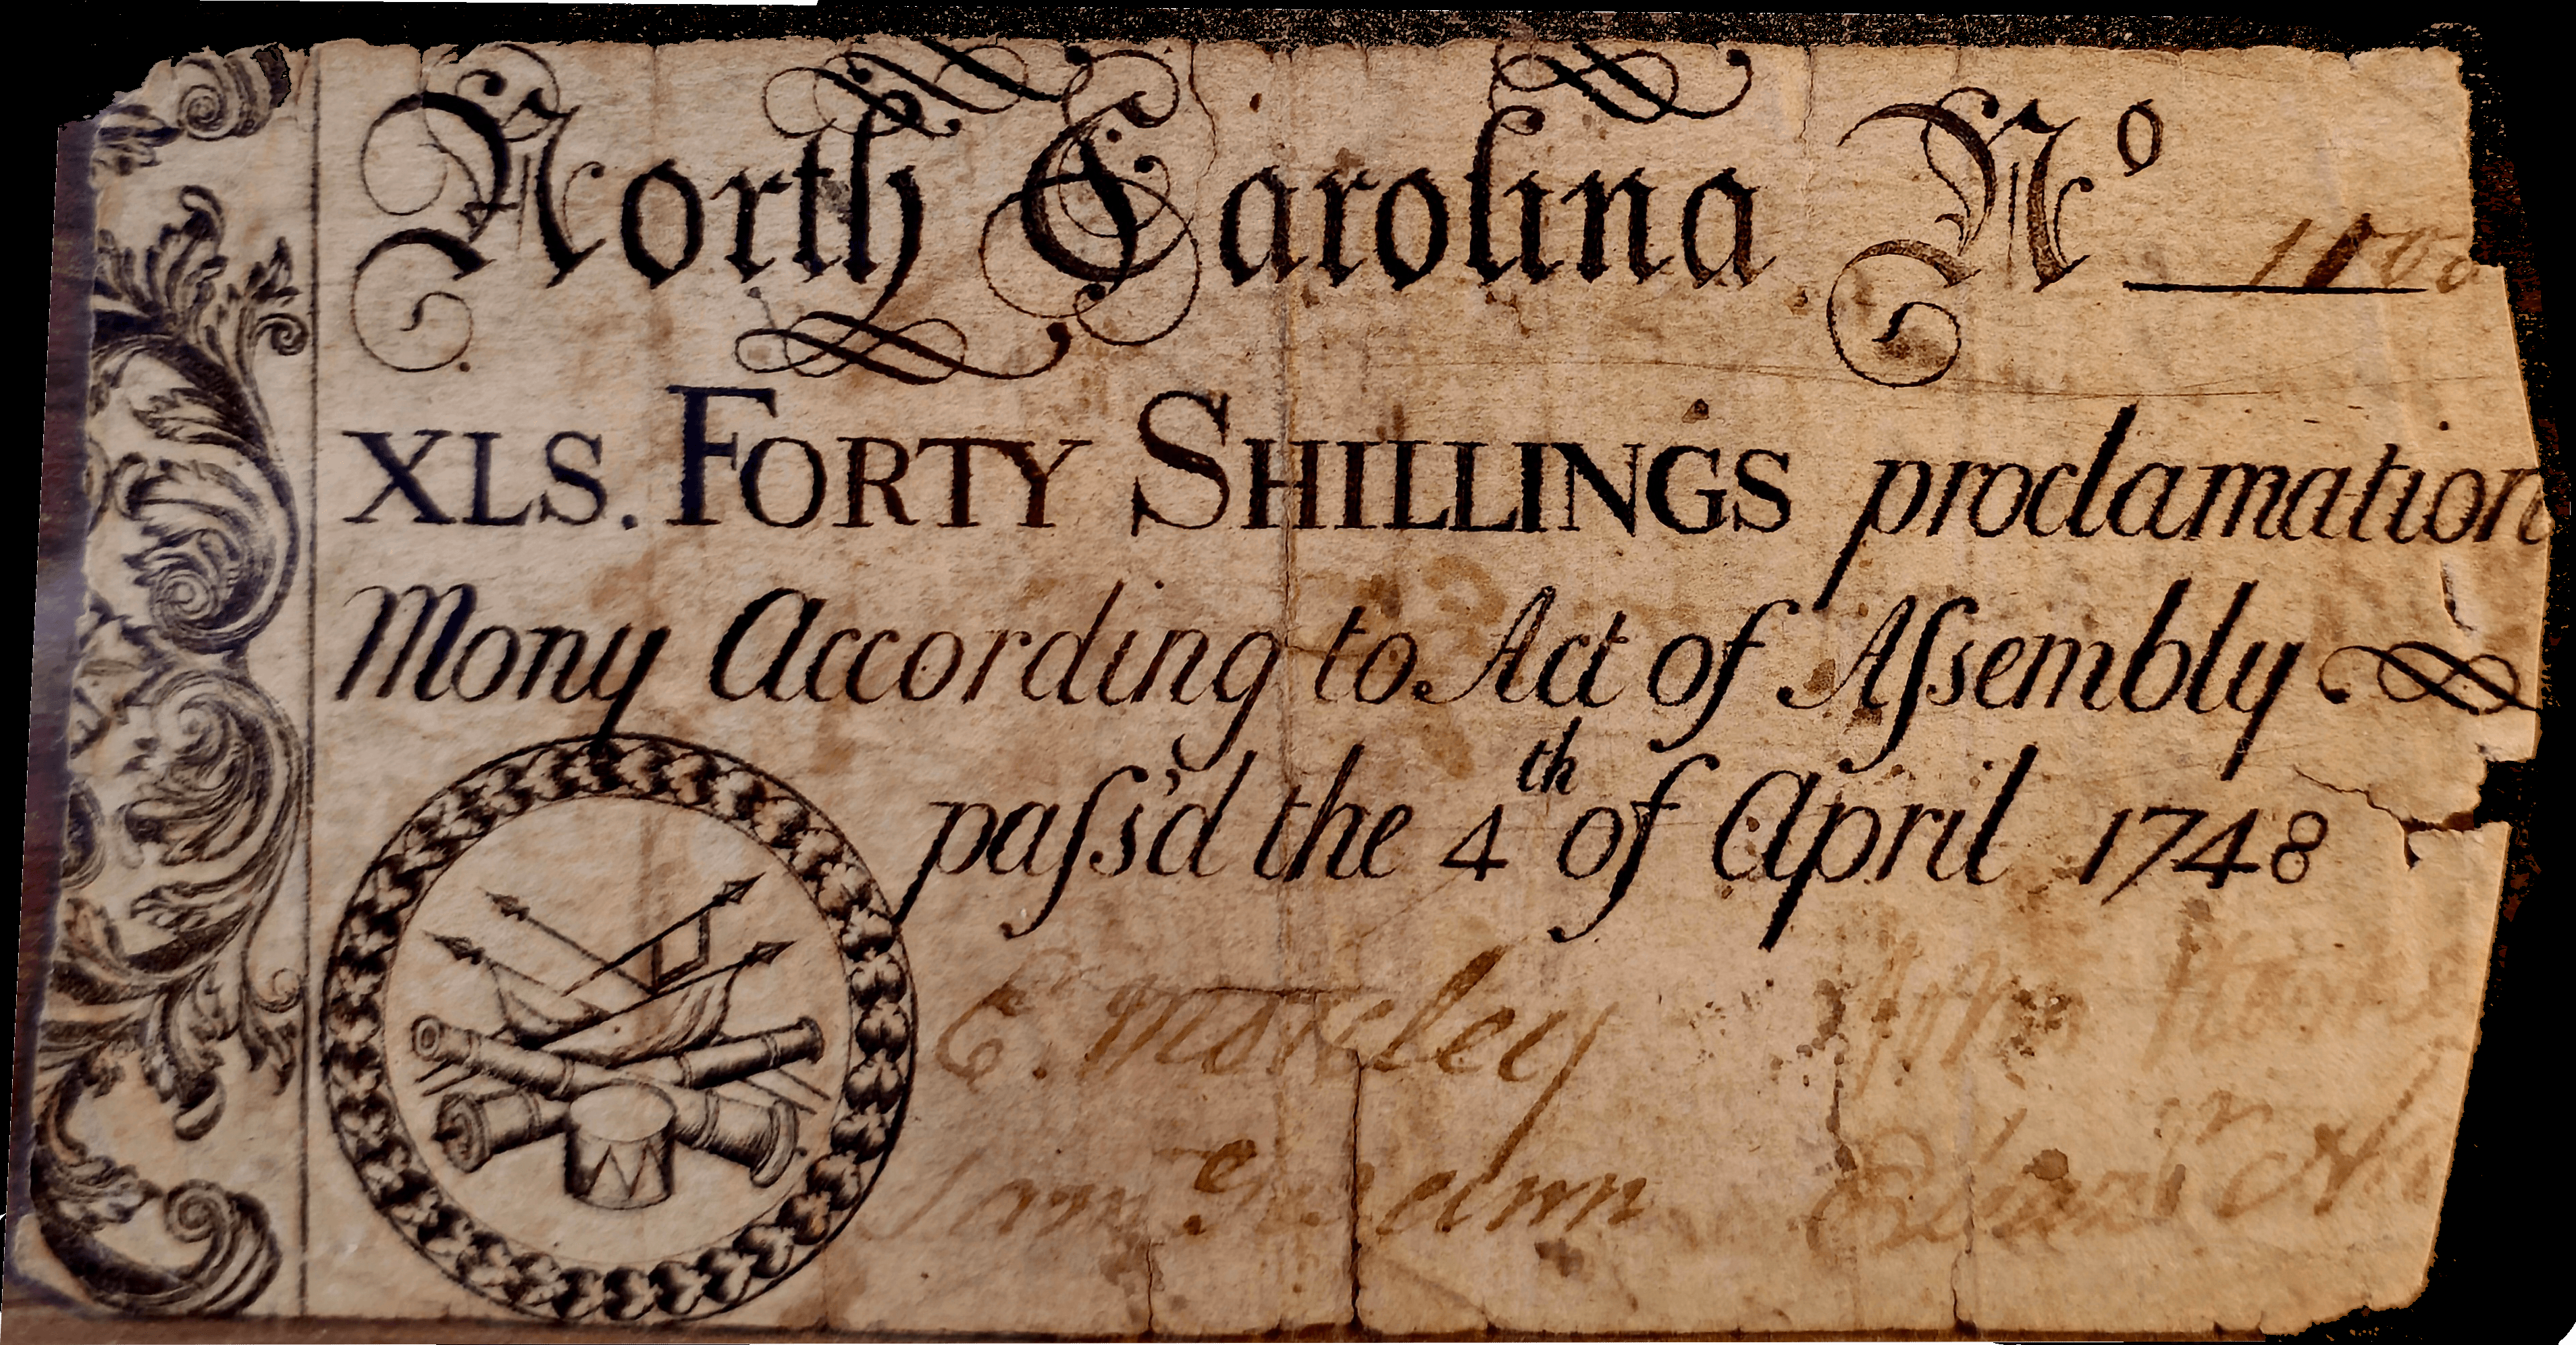 North Carolina Nº
XLS. FORTY SHILLINGS proclamation
Mony According to Act of Aſsembly
paſs'd the 4th of April 1748
E. Moseley